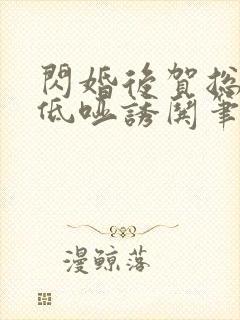 閃婚後賀總
低啞誘鬨筆
漫鯨落